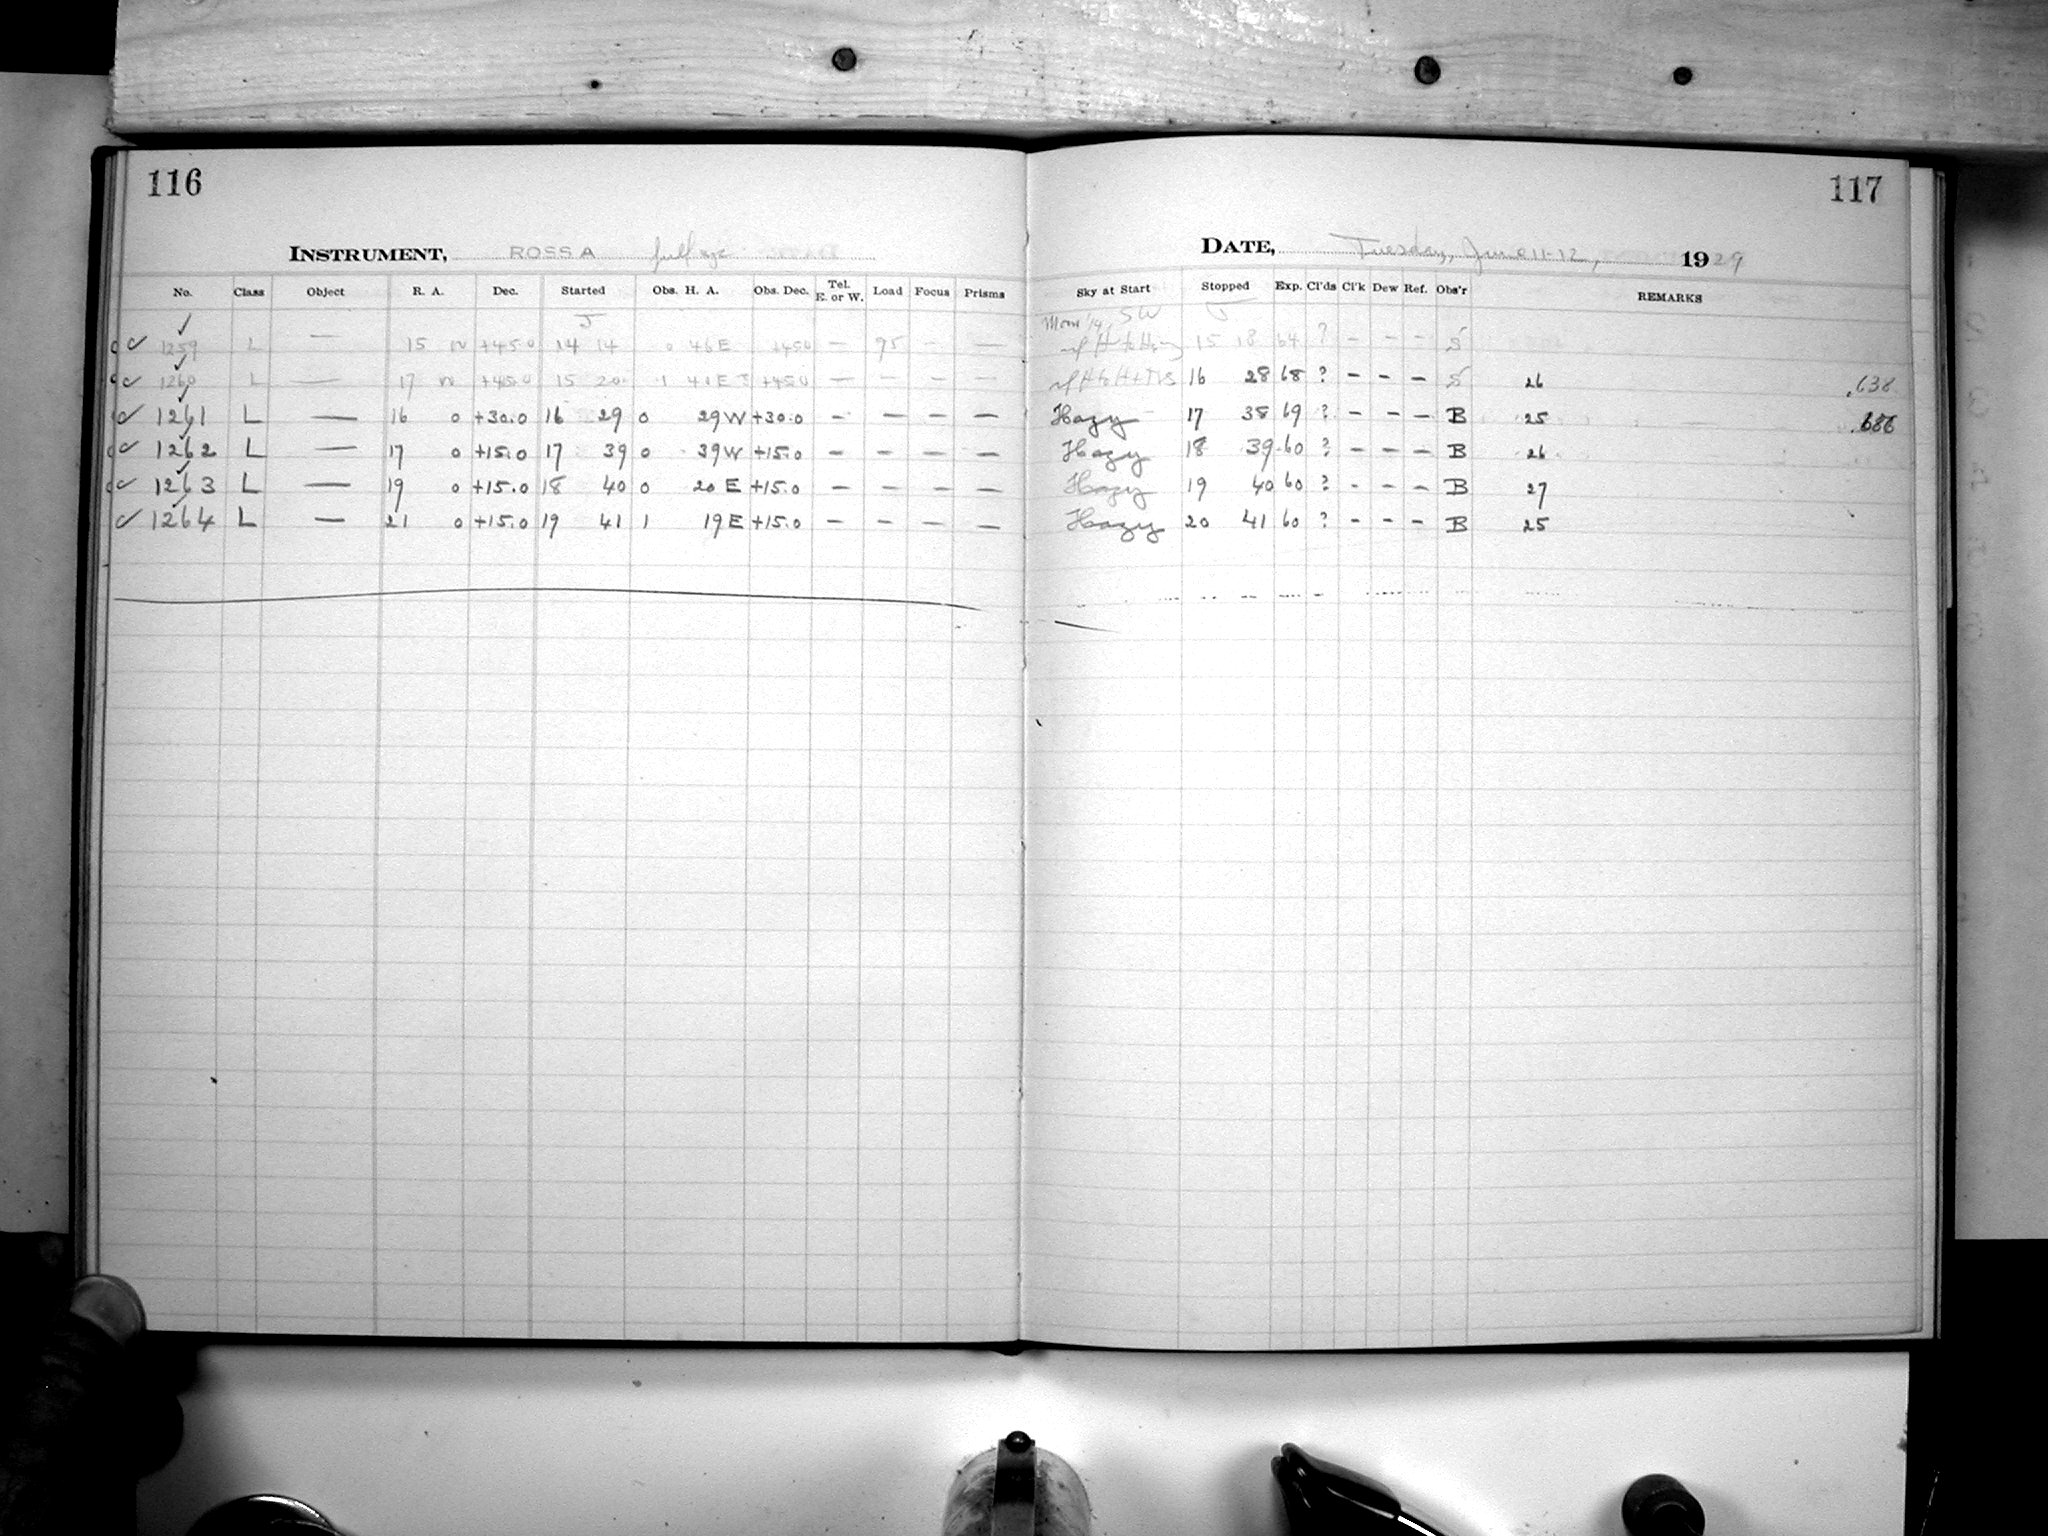 116
INSTRUMENT, ROSS A full ape
No. Class Object R. A. Dec. Started Obs. H. A. Obs. Dec. Tel. E. or W. Load Focus Prisms
1259 L — 15 +45.0 14 14 0 46 E +45.0 — 95 - —
1260 L — 17 +45.0 15 20 1 40 E +45.0 — - - —
1261 L — 16 0 +30.0 16 29 0 29 W +30.0 - - - -
1262 L — 17 0 +15.0 17 39 0 39 W +15.0 - - - -
1263 L — 19 0 +15.0 18 40 0 20 E +15.0 - - - -
1264 L — 21 0 +15.0 19 41 1 19 E +15.0 - - - -
117
DATE, Tuesday, June 11-12, 1929
Sky at Start Stopped Exp. Cl'ds Cl'k Dew Ref. Obs'r REMARKS
Moon 1/4, SW
15 18 64 ? - - - S
16 28 68 ? - - - S 26 .638
Hazy 17 38 69 ? - - - B 25
Hazy 18 39 60 ? - - - B 26
Hazy 19 40 60 ? - - - B 27
Hazy 20 41 60 ? - - - B 25